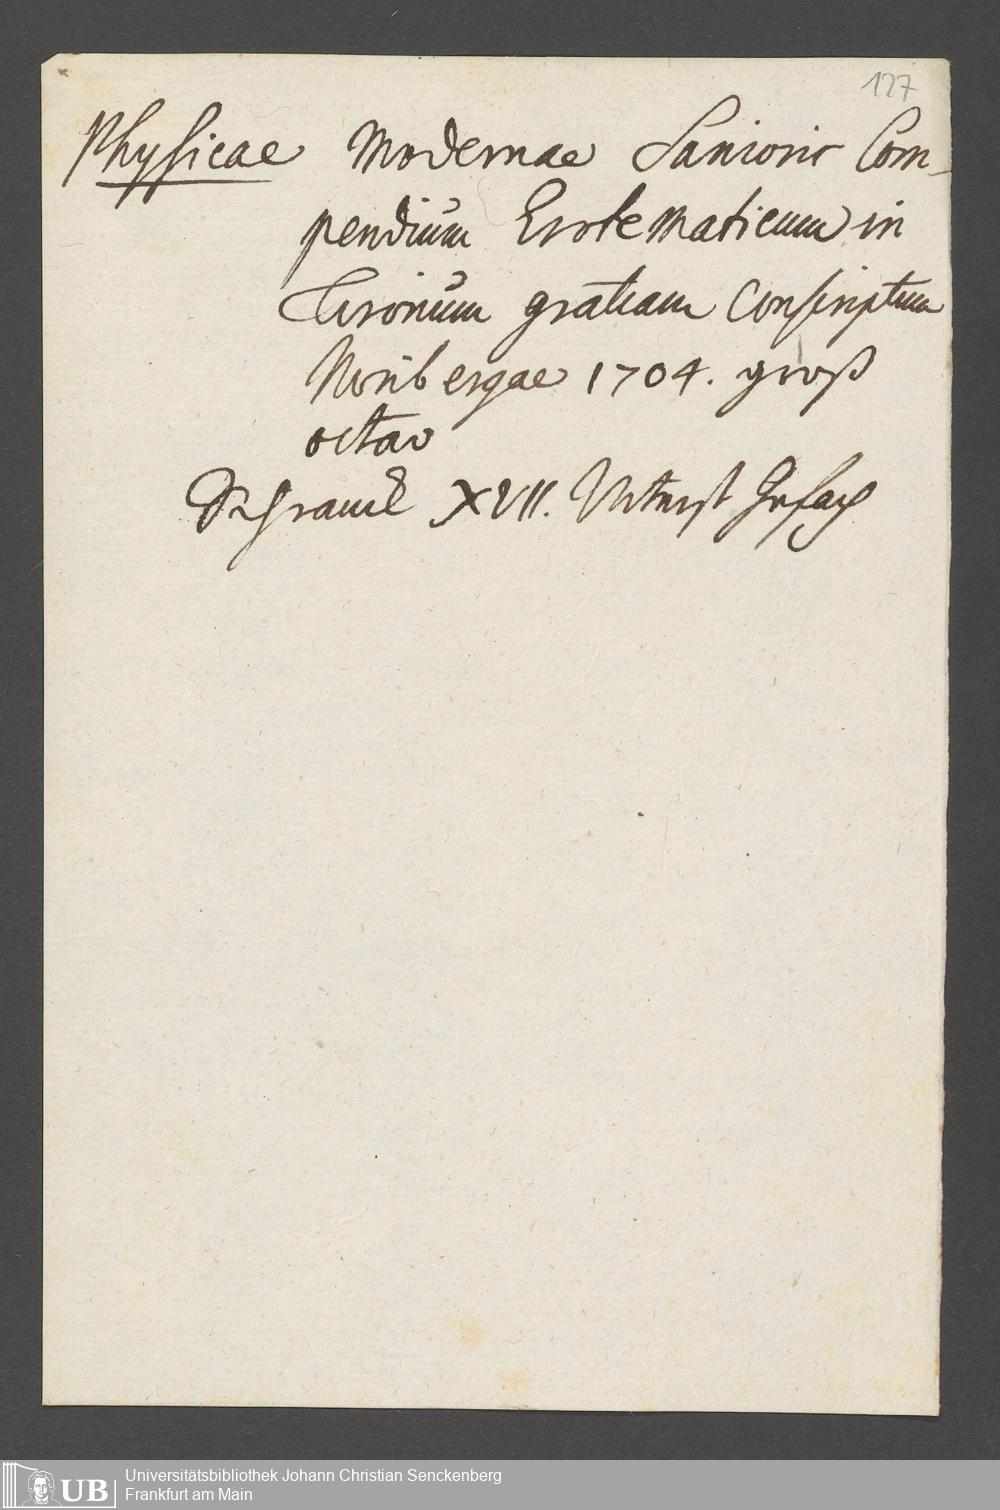 127
Physicae Modernae Sanioris Com-
pendium Erotematicum in
Tironum gratiam Conscriptum
Noribergae 1704. groß
octav
Schranck XVII. Unterst Gefach
UB
Universitätsbibliothek Johann Christian Senckenberg
Frankfurt am Main